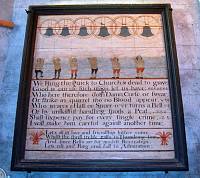 We Ring the Quick to Church the dead to grave
Good is our use such usage let us have
Who here therefore doth Damn, Curse or Swear
Or strike in quarrel tho no Blood appear
Who wears a Hatt or Spurr or turns a Bell
Or by unskilful handling
Shall Sixpence pay for every single crime
'Twill make him careful against another time
Let all in love and friendship hither come
Whilst the shrill treble calls to
And since Bells are for modest Recreation
Let us and Ring and fall to Admiration